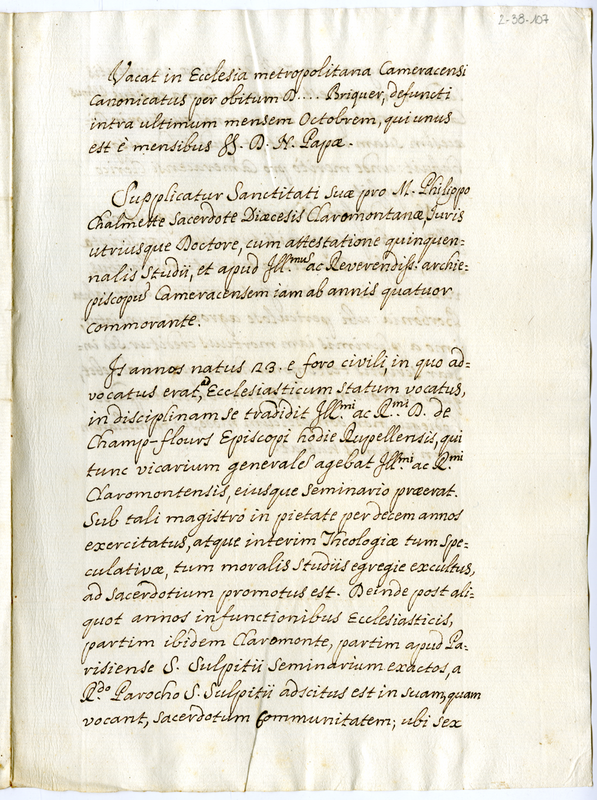 2-38-107
Vacat in Ecclesia metropolitana Cameracensi
Canonicatus per obitum D.... Briquer, defuncti
intra ultimum mensem Octobrem, qui unus
est è mensibus SS. D. N. Papæ.
Supplicatur Sanctitati suæ pro M. Philippo
Chalmette Sacerdote Diœcesis Claromontanæ, Juris
utriusque Doctore, cum attestatione quinquen=
nalis Studii, et apud Jll.mus ac Reverendiss. archie=
piscopus Cameracensem iam ab annis quatuor
commorante.
Js annos natus 23. e foro civili, in quo ad=
vocatus erat, ad Ecclesiasticum statum vocatus,
in disciplinam se tradidit Jll.mi ac R.mi D. de
Champ-flours Episcopi hodie Rupellensis, qui
tunc vicarium generalem agebat Jll.mi ac R.mi
Claromontensis, eiusque Seminario præerat.
Sub tali magistro in pietate per decem annos
exercitatus, atque interim Theologiæ tum Spe=
culativæ, tum moralis Studiis egregie excultus,
ad Sacerdotium promotus est. Deinde post ali=
quot annos in functionibus Ecclesiasticis,
partim ibidem Claromonte, partim apud Pa=
risiense S. Sulpitii Seminarium exactos, a
R.do Parocho S. Sulpitii adscitus est in suam, quam
vocant, Sacerdotum Communitatem; ubi sex